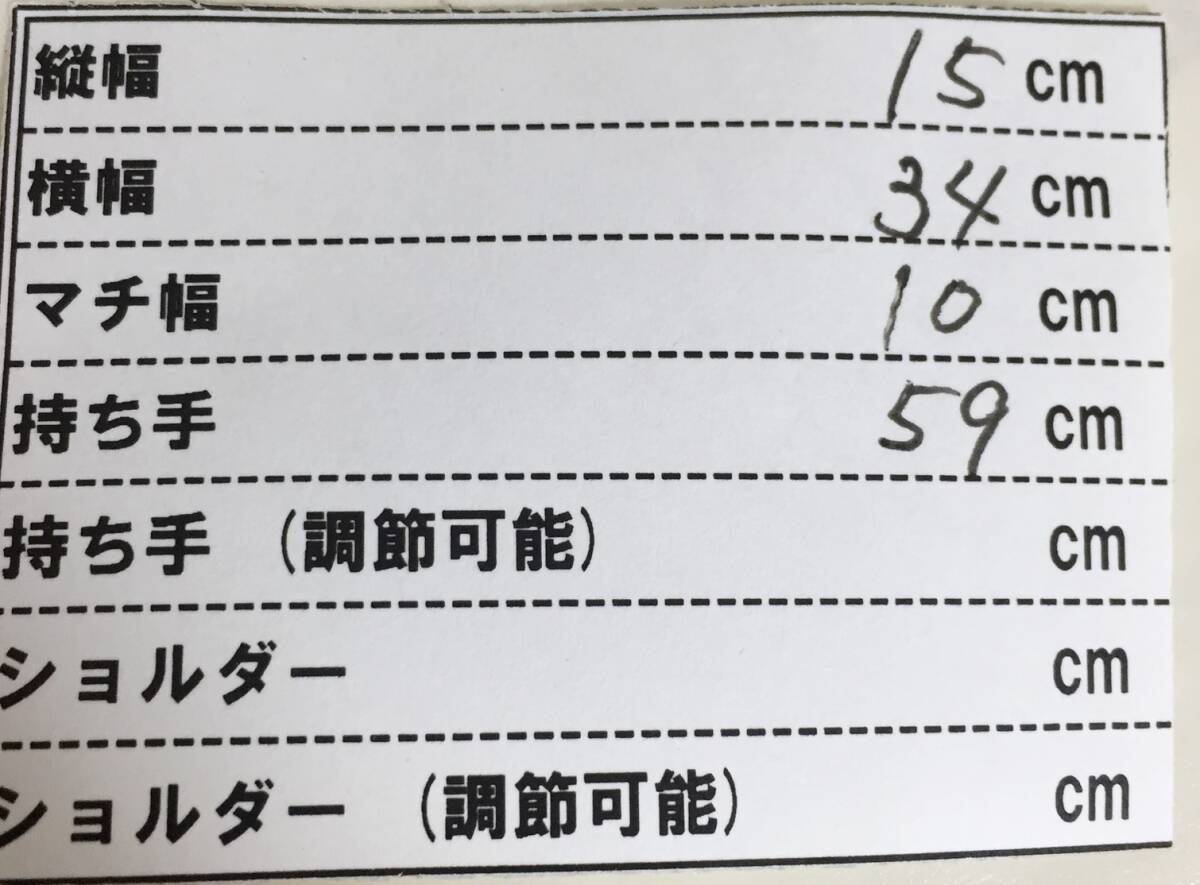 縦幅 15 cm
横幅 34 cm
マチ幅 10 cm
持ち手 59 cm
持ち手 (調節可能) cm
ショルダー cm
ショルダー (調節可能) cm